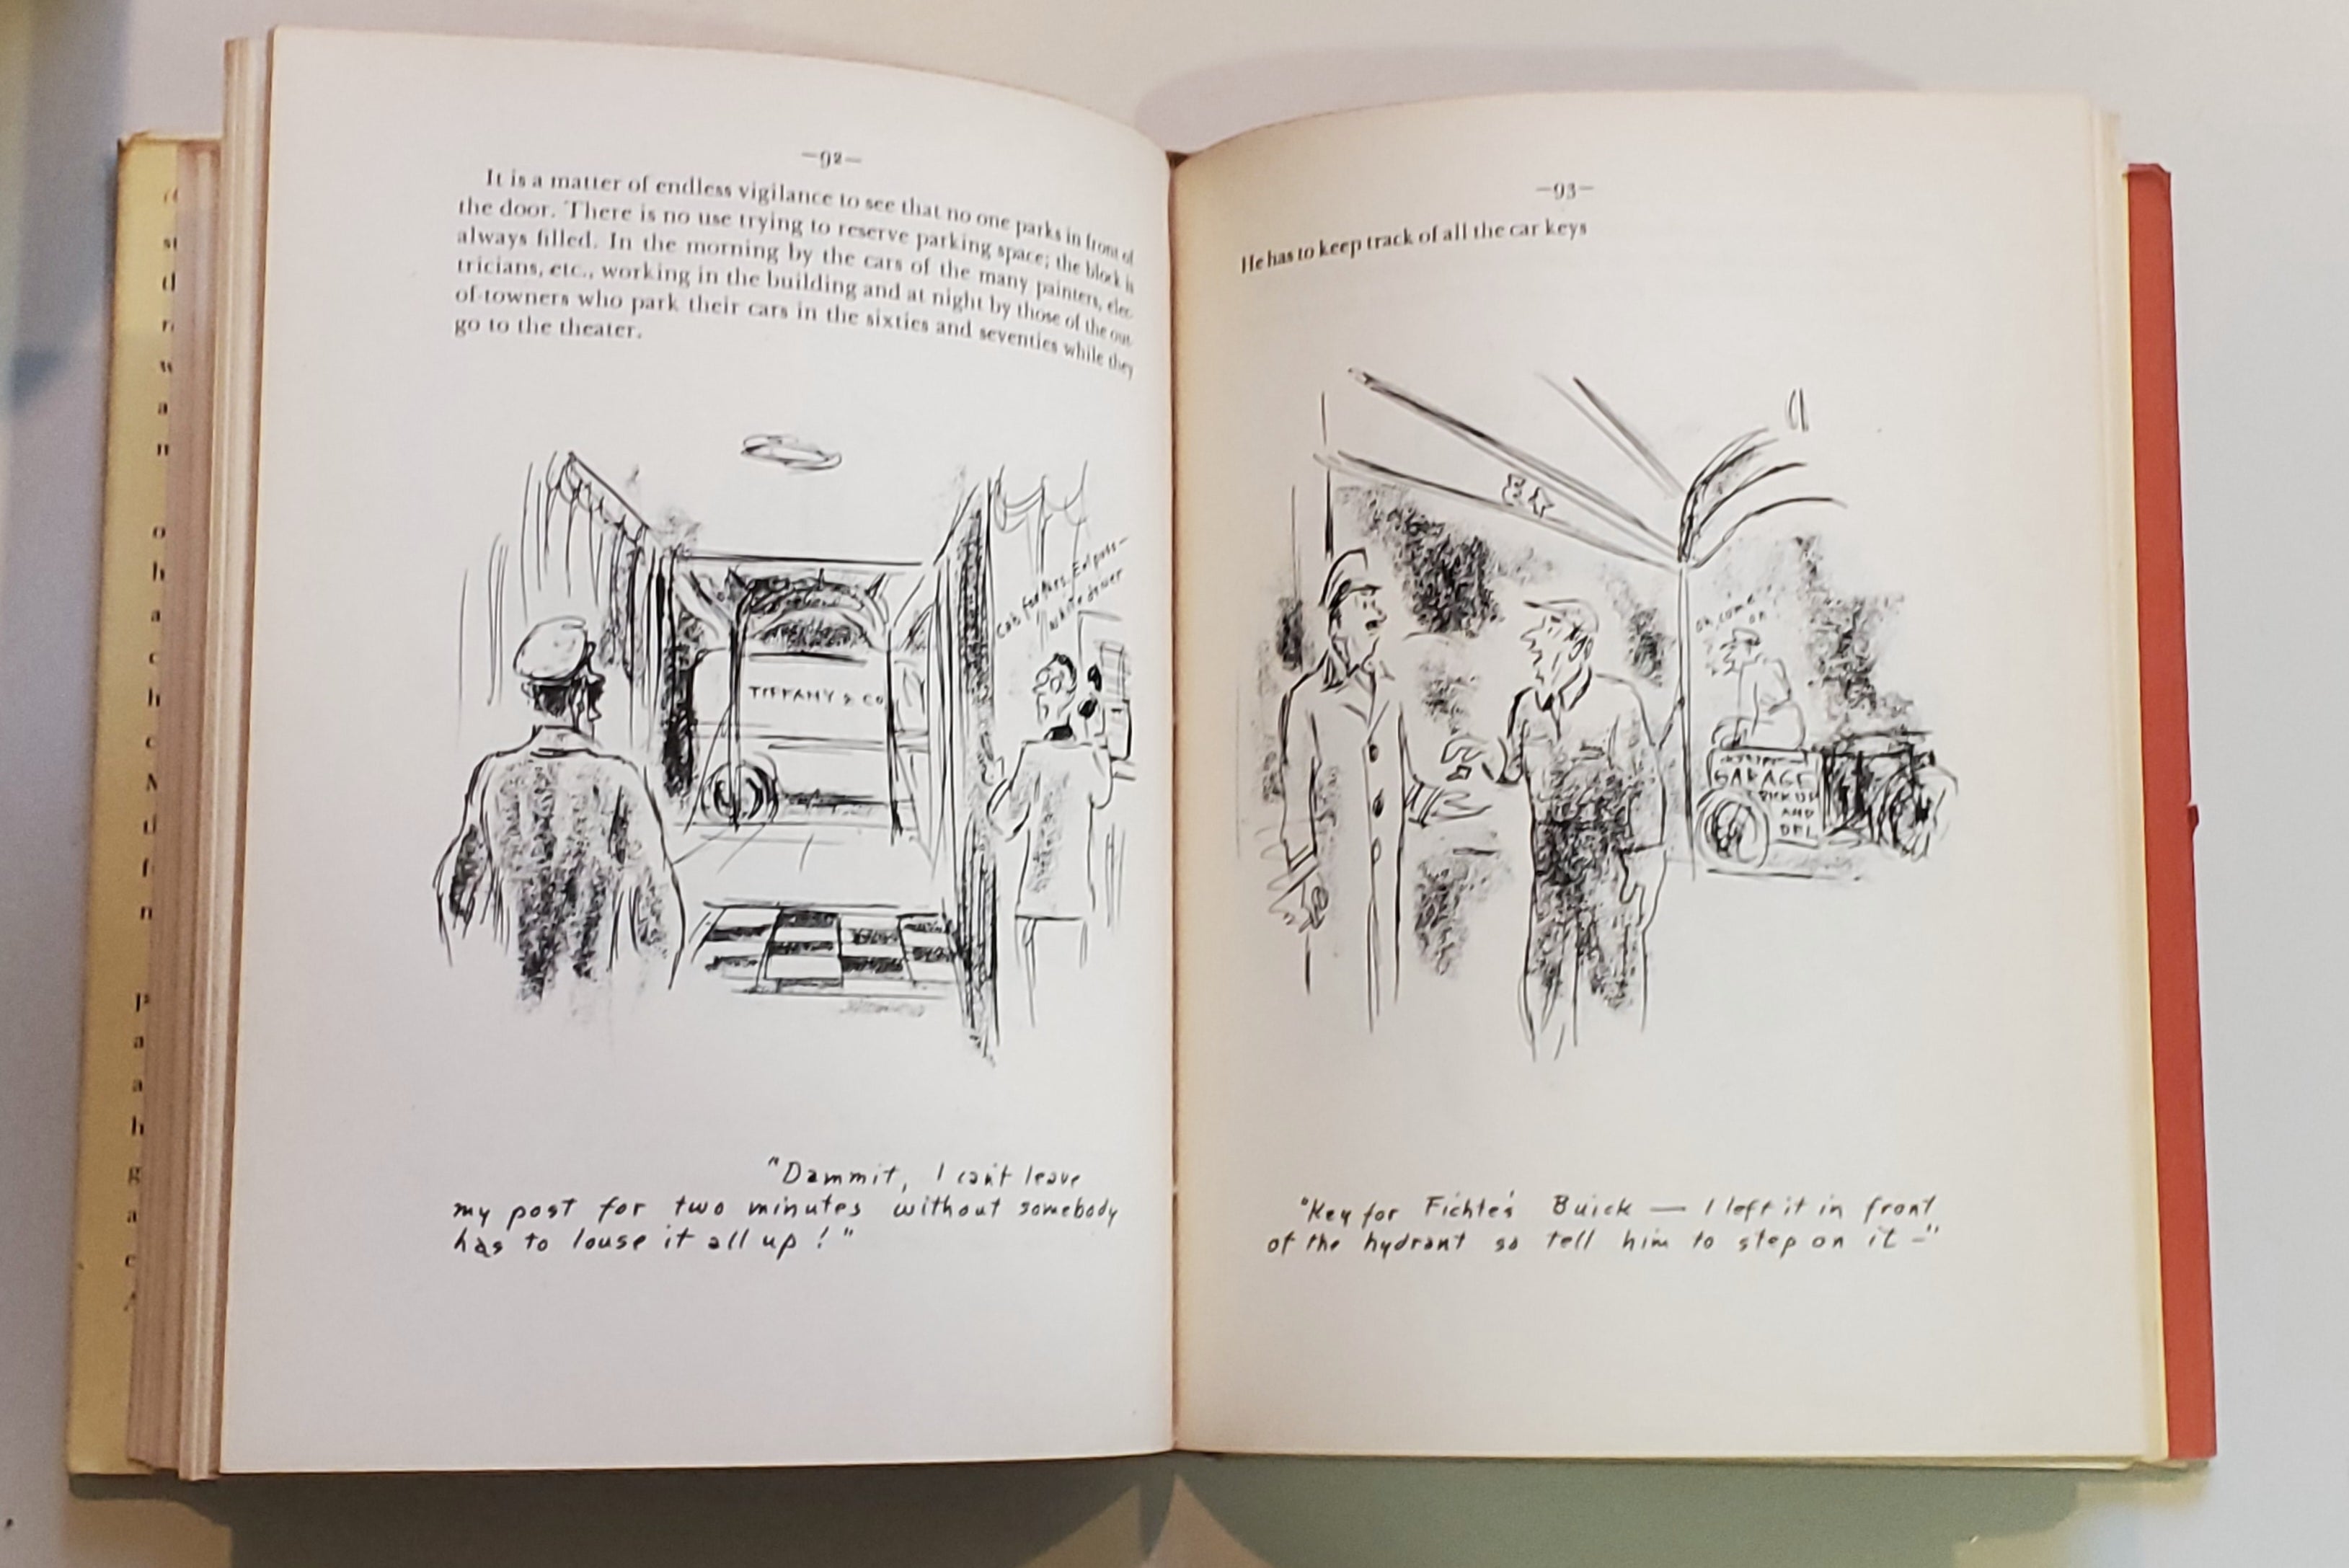 —92—
It is a matter of endless vigilance to see that no one parks in front of
the door. There is no use trying to reserve parking space; the block is
always filled. In the morning by the cars of the many painters, elec-
tricians, etc., working in the building and at night by those of the out-
of-towners who park their cars in the sixties and seventies while they
go to the theater.
Cab for Mrs.
white drawer
TIFFANY & CO
"Dammit, I can't leave
my post for two minutes without somebody
has to louse it all up!"
—93—
He has to keep track of all the car keys
Oh, come
on
GARAGE
PICK UP
AND
DEL
"Key for Fichte's Buick — I left it in front
of the hydrant so tell him to step on it —"